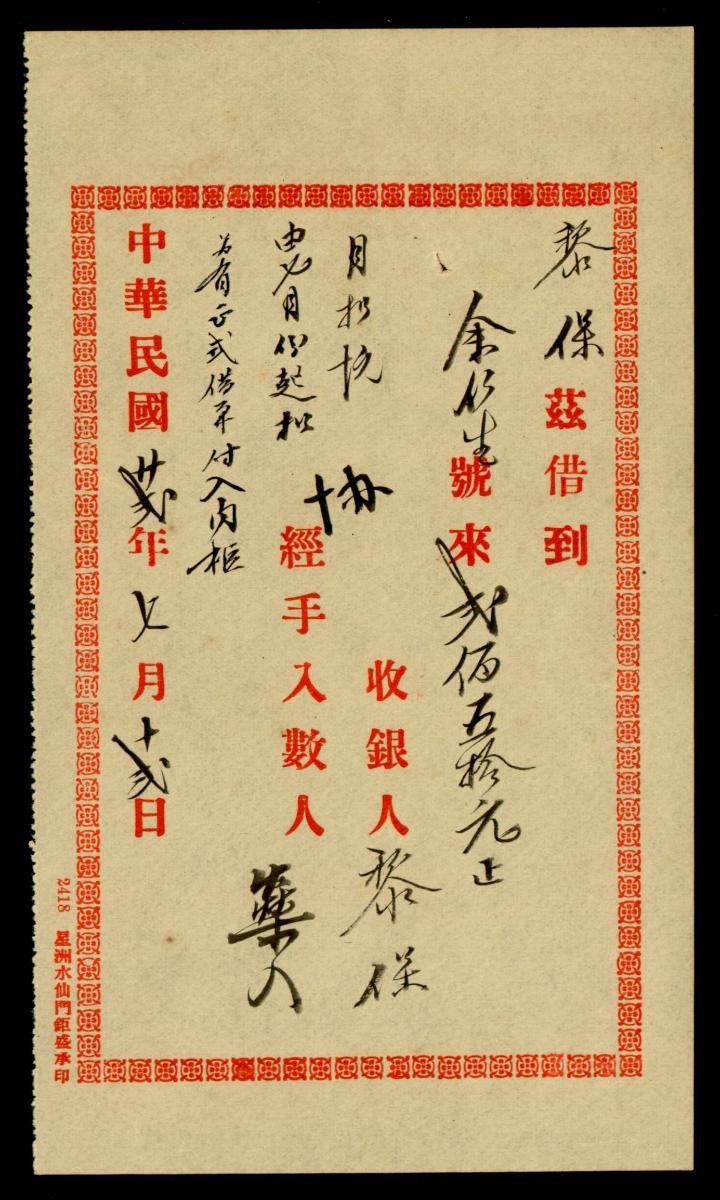 黎保茲借到
余仁生號來貳佰五拾元正
收銀人黎保
月扣
協
由七月份起扣
經手入數人
另有正式借單付入內柜
中華民國廿貳年七月十貳日
2418 星洲水仙門鉅盛承印